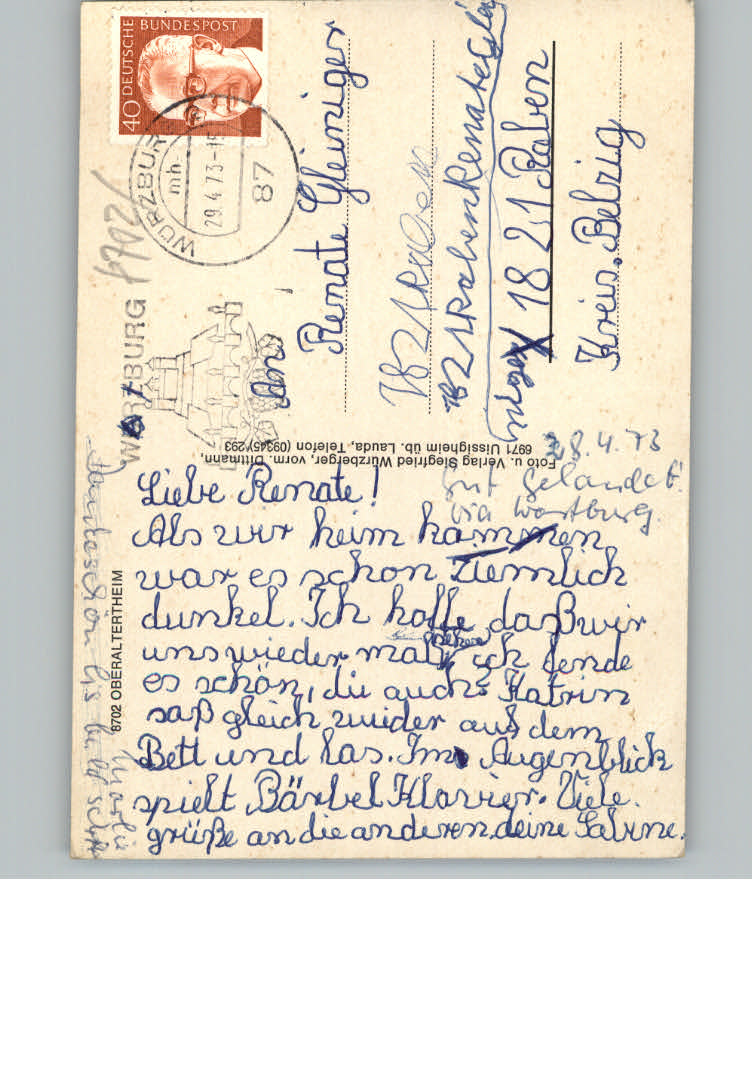 40 DEUTSCHE BUNDESPOST
WÜRZBURG
mh
29.4.73-15
87
WÜRZBURG
8702
An
Renate Gleiniger
1821 Raben
1821 Raben Renate Glei
X 1821 Raben
Kreis. Belzig
Foto u. Verlag Siegfried Würzberger, vorm. Dittmann,
6971 Uissigheim üb. Lauda, Telefon (09345) 293
8702 OBERALTERTHEIM
28.4.73
Gut gelandet!
via Wartburg.
Liebe Renate!
Als wir heim kammen
war es schon ziemlich
dunkel. Ich hoffe daßwir
uns wieder mal sehen ich fende
es schön, du auch? Katrin
saß gleich wider auf dem
Bett und las. Im Augenblick
spielt Bärbel Klavier. Viele
grüße an die anderen. deine Sabine.
Dankeschön bis bald